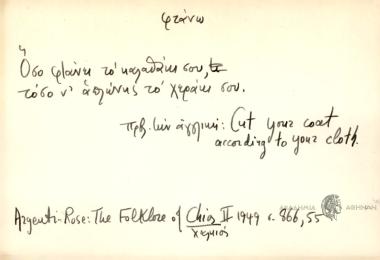 φτάνω
Ὅσο φτάνει τὸ καλαθάκι σου,
τόσο ν' ἁπλώνῃς τὸ χεράκι σου.
πρβ. τὴν ἀγγλικὴ: Cut your coat
according to your cloth.
Argenti-Rose: The Folklore of Chios II 1949 σ. 866, 55
ΑΚΑΔΗΜΙΑ ΑΘΗΝΩΝ